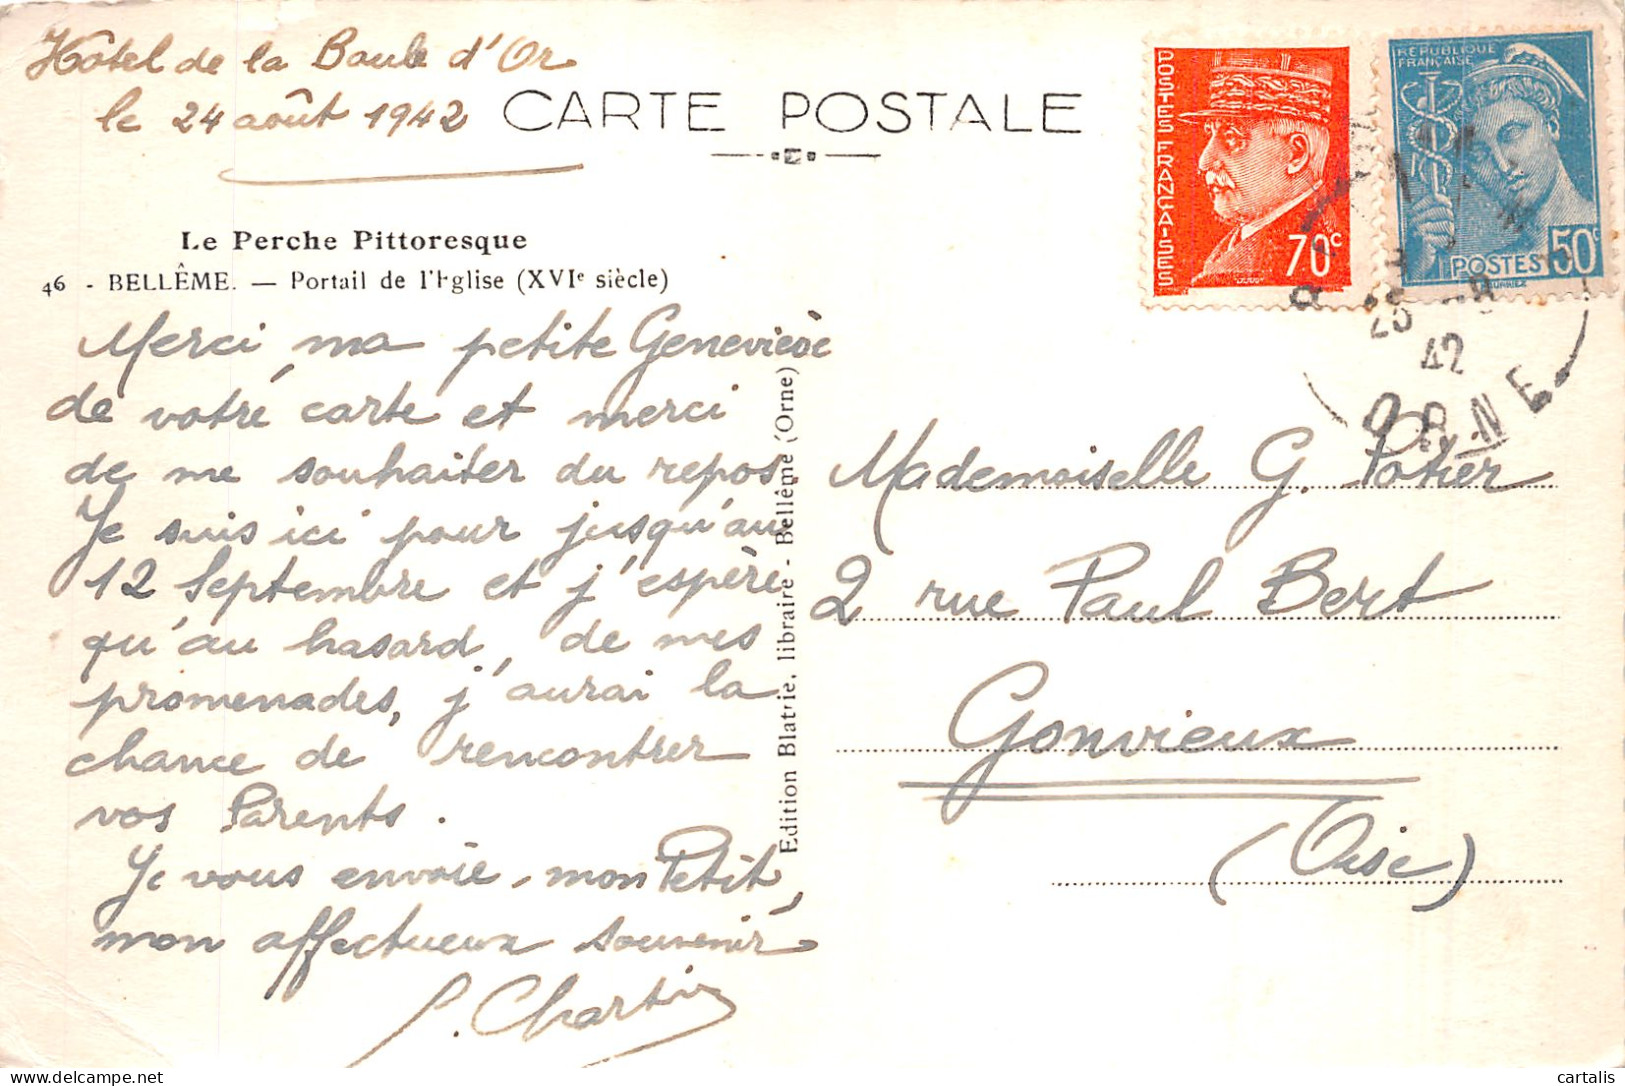 Hôtel de la Boule d'Or
le 24 août 1942
CARTE POSTALE
POSTES FRANÇAISES
70c
RÉPUBLIQUE
FRANÇAISE
POSTES 50c
25
42
ORNE
Le Perche Pittoresque
46 - BELLÊME. — Portail de l'Eglise (XVIe siècle)
Merci ma petite Geneviève
de votre carte et merci
de me souhaiter du repos.
Je suis ici pour jusqu'au
12 Septembre et j'espère
qu'au hasard, de mes
promenades, j'aurai la
chance de rencontrer
vos Parents.
Je vous envoie, mon Petit,
mon affectueux souvenir.
Edition Blatrie, libraire - Bellême (Orne)
Mademoiselle G. Potier
2 rue Paul Bert
Gonvieux
(Oise)
cartalis